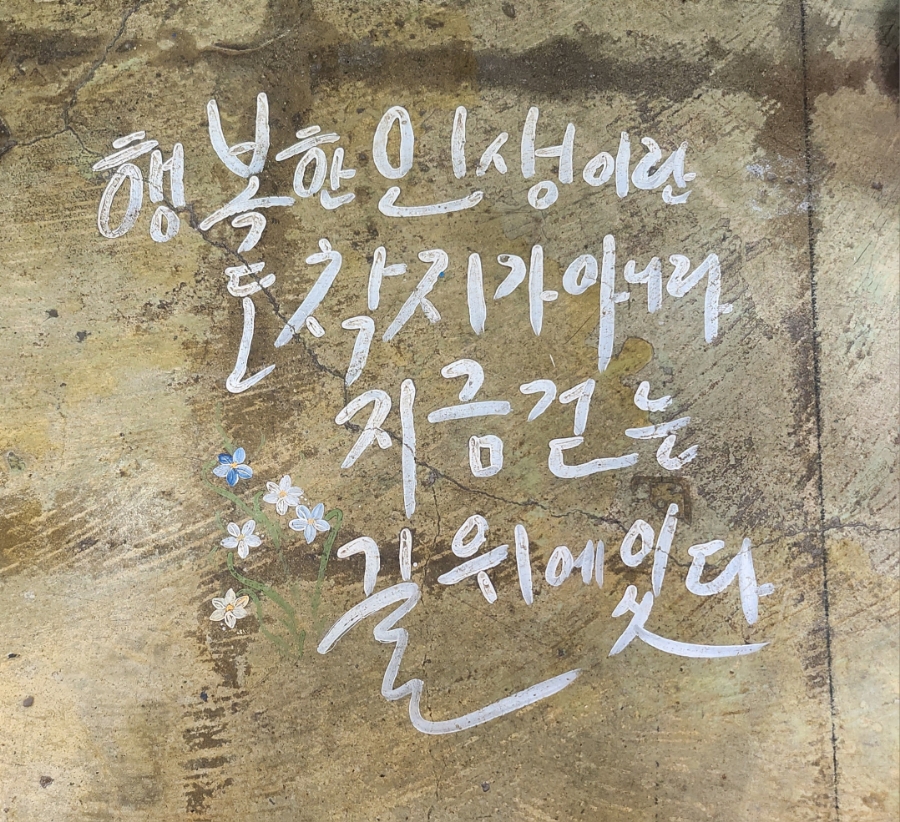 행복한 인생이란
도착지가 아니라
지금 걷는
길 위에 있다